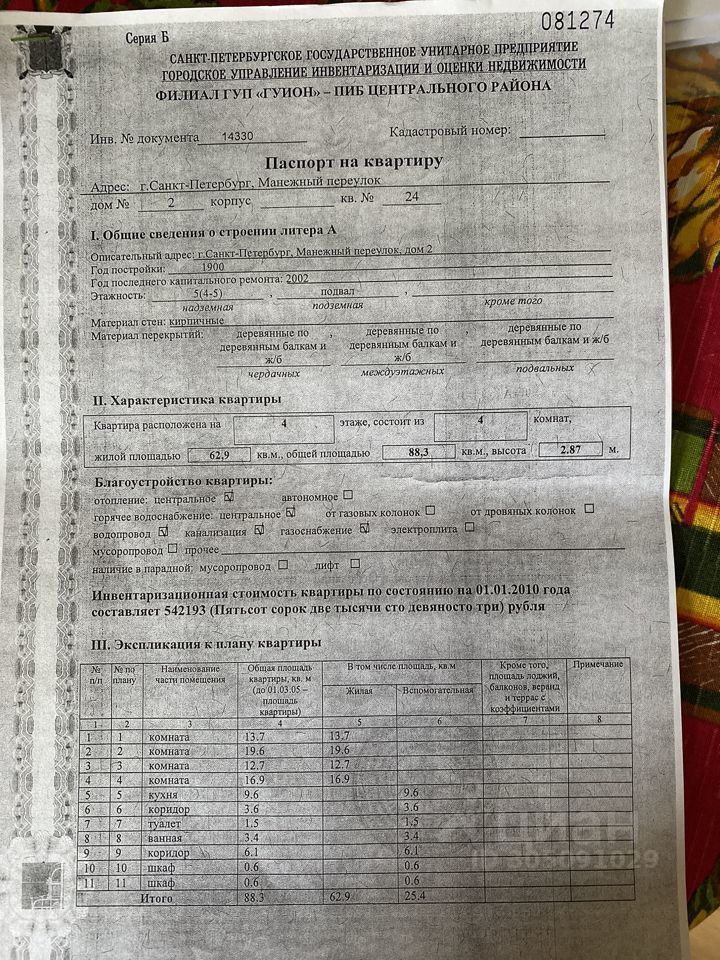 081274
Серия Б
САНКТ-ПЕТЕРБУРГСКОЕ ГОСУДАРСТВЕННОЕ УНИТАРНОЕ ПРЕДПРИЯТИЕ
ГОРОДСКОЕ УПРАВЛЕНИЕ ИНВЕНТАРИЗАЦИИ И ОЦЕНКИ НЕДВИЖИМОСТИ
ФИЛИАЛ ГУП «ГУИОН» – ПИБ ЦЕНТРАЛЬНОГО РАЙОНА
Инв. № документа 14330 Кадастровый номер:
Паспорт на квартиру
Адрес: г.Санкт-Петербург, Манежный переулок
дом № 2 корпус кв. № 24
I. Общие сведения о строении литера А
Описательный адрес: г.Санкт-Петербург, Манежный переулок, дом 2
Год постройки: 1900
Год последнего капитального ремонта: 2002
Этажность: 5(4-5) , подвал ,
надземная подземная кроме того
Материал стен: кирпичные
Материал перекрытий: деревянные по , деревянные по , деревянные по
деревянным балкам и деревянным балкам и деревянным балкам и ж/б
ж/б ж/б
чердачных междуэтажных подвальных
II. Характеристика квартиры
Квартира расположена на 4 этаже, состоит из 4 комнат,
жилой площадью 62,9 кв.м., общей площадью 88,3 кв.м., высота 2.87 м.
Благоустройство квартиры:
отопление: центральное ☑ автономное ☐
горячее водоснабжение: центральное ☑ от газовых колонок ☐ от дровяных колонок ☐
водопровод ☑ канализация ☑ газоснабжение ☑ электроплита ☐
мусоропровод ☐ прочее
наличие в парадной: мусоропровод ☐ лифт ☐
Инвентаризационная стоимость квартиры по состоянию на 01.01.2010 года
составляет 542193 (Пятьсот сорок две тысячи сто девяносто три) рубля
III. Экспликация к плану квартиры
№ п/п № по плану Наименование части помещения Общая площадь квартиры, кв. м (до 01.03.05 – площадь квартиры) В том числе площадь, кв.м Жилая Вспомогательная Кроме того, площадь лоджий, балконов, веранд и террас с коэффициентами Примечание
1 2 3 4 5 6 7 8
1 1 комната 13.7 13.7
2 2 комната 19.6 19.6
3 3 комната 12.7 12.7
4 4 комната 16.9 16.9
5 5 кухня 9.6 9.6
6 6 коридор 3.6 3.6
7 7 туалет 1.5 1.5
8 8 ванная 3.4 3.4
9 9 коридор 6.1 6.1
10 10 шкаф 0.6 0.6
11 11 шкаф 0.6 0.6
Итого 88.3 62.9 25.4